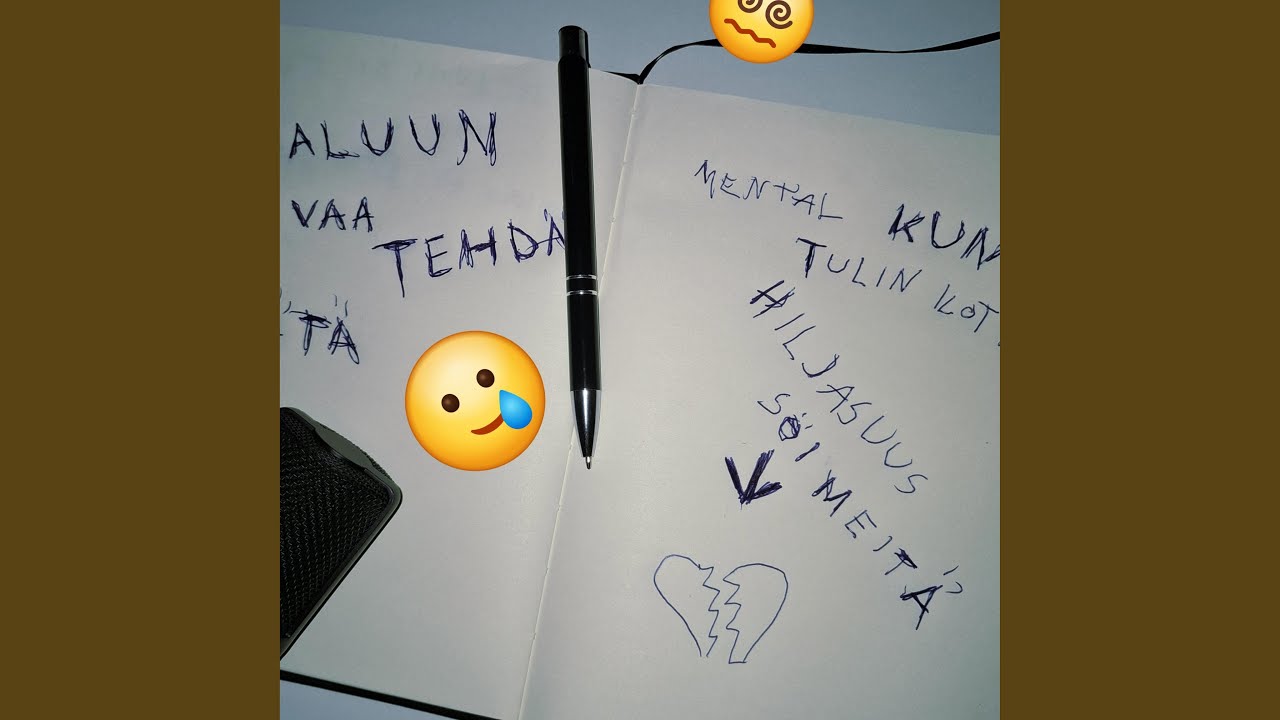 ALUUN
VAA
TEHDÄ
TÄ
MENTAL
KUN
TULIN KOT
HILJASUUS
SÖI MEITÄ